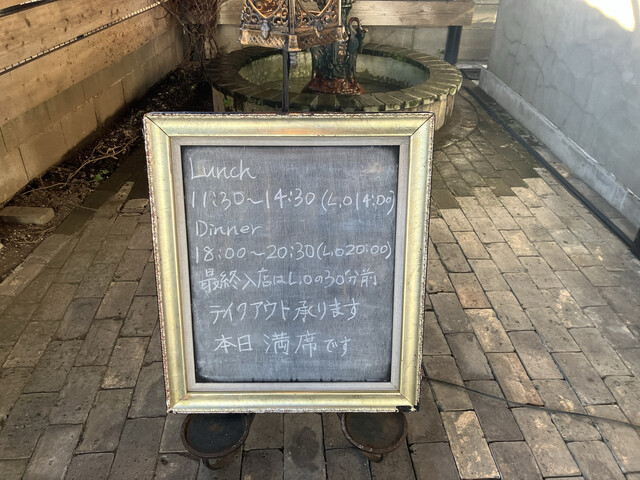 Lunch
11:30～14:30(L.O14:00)
Dinner
18:00～20:30(L.O20:00)
最終入店はL.Oの30分前
テイクアウト承ります
本日 満席です